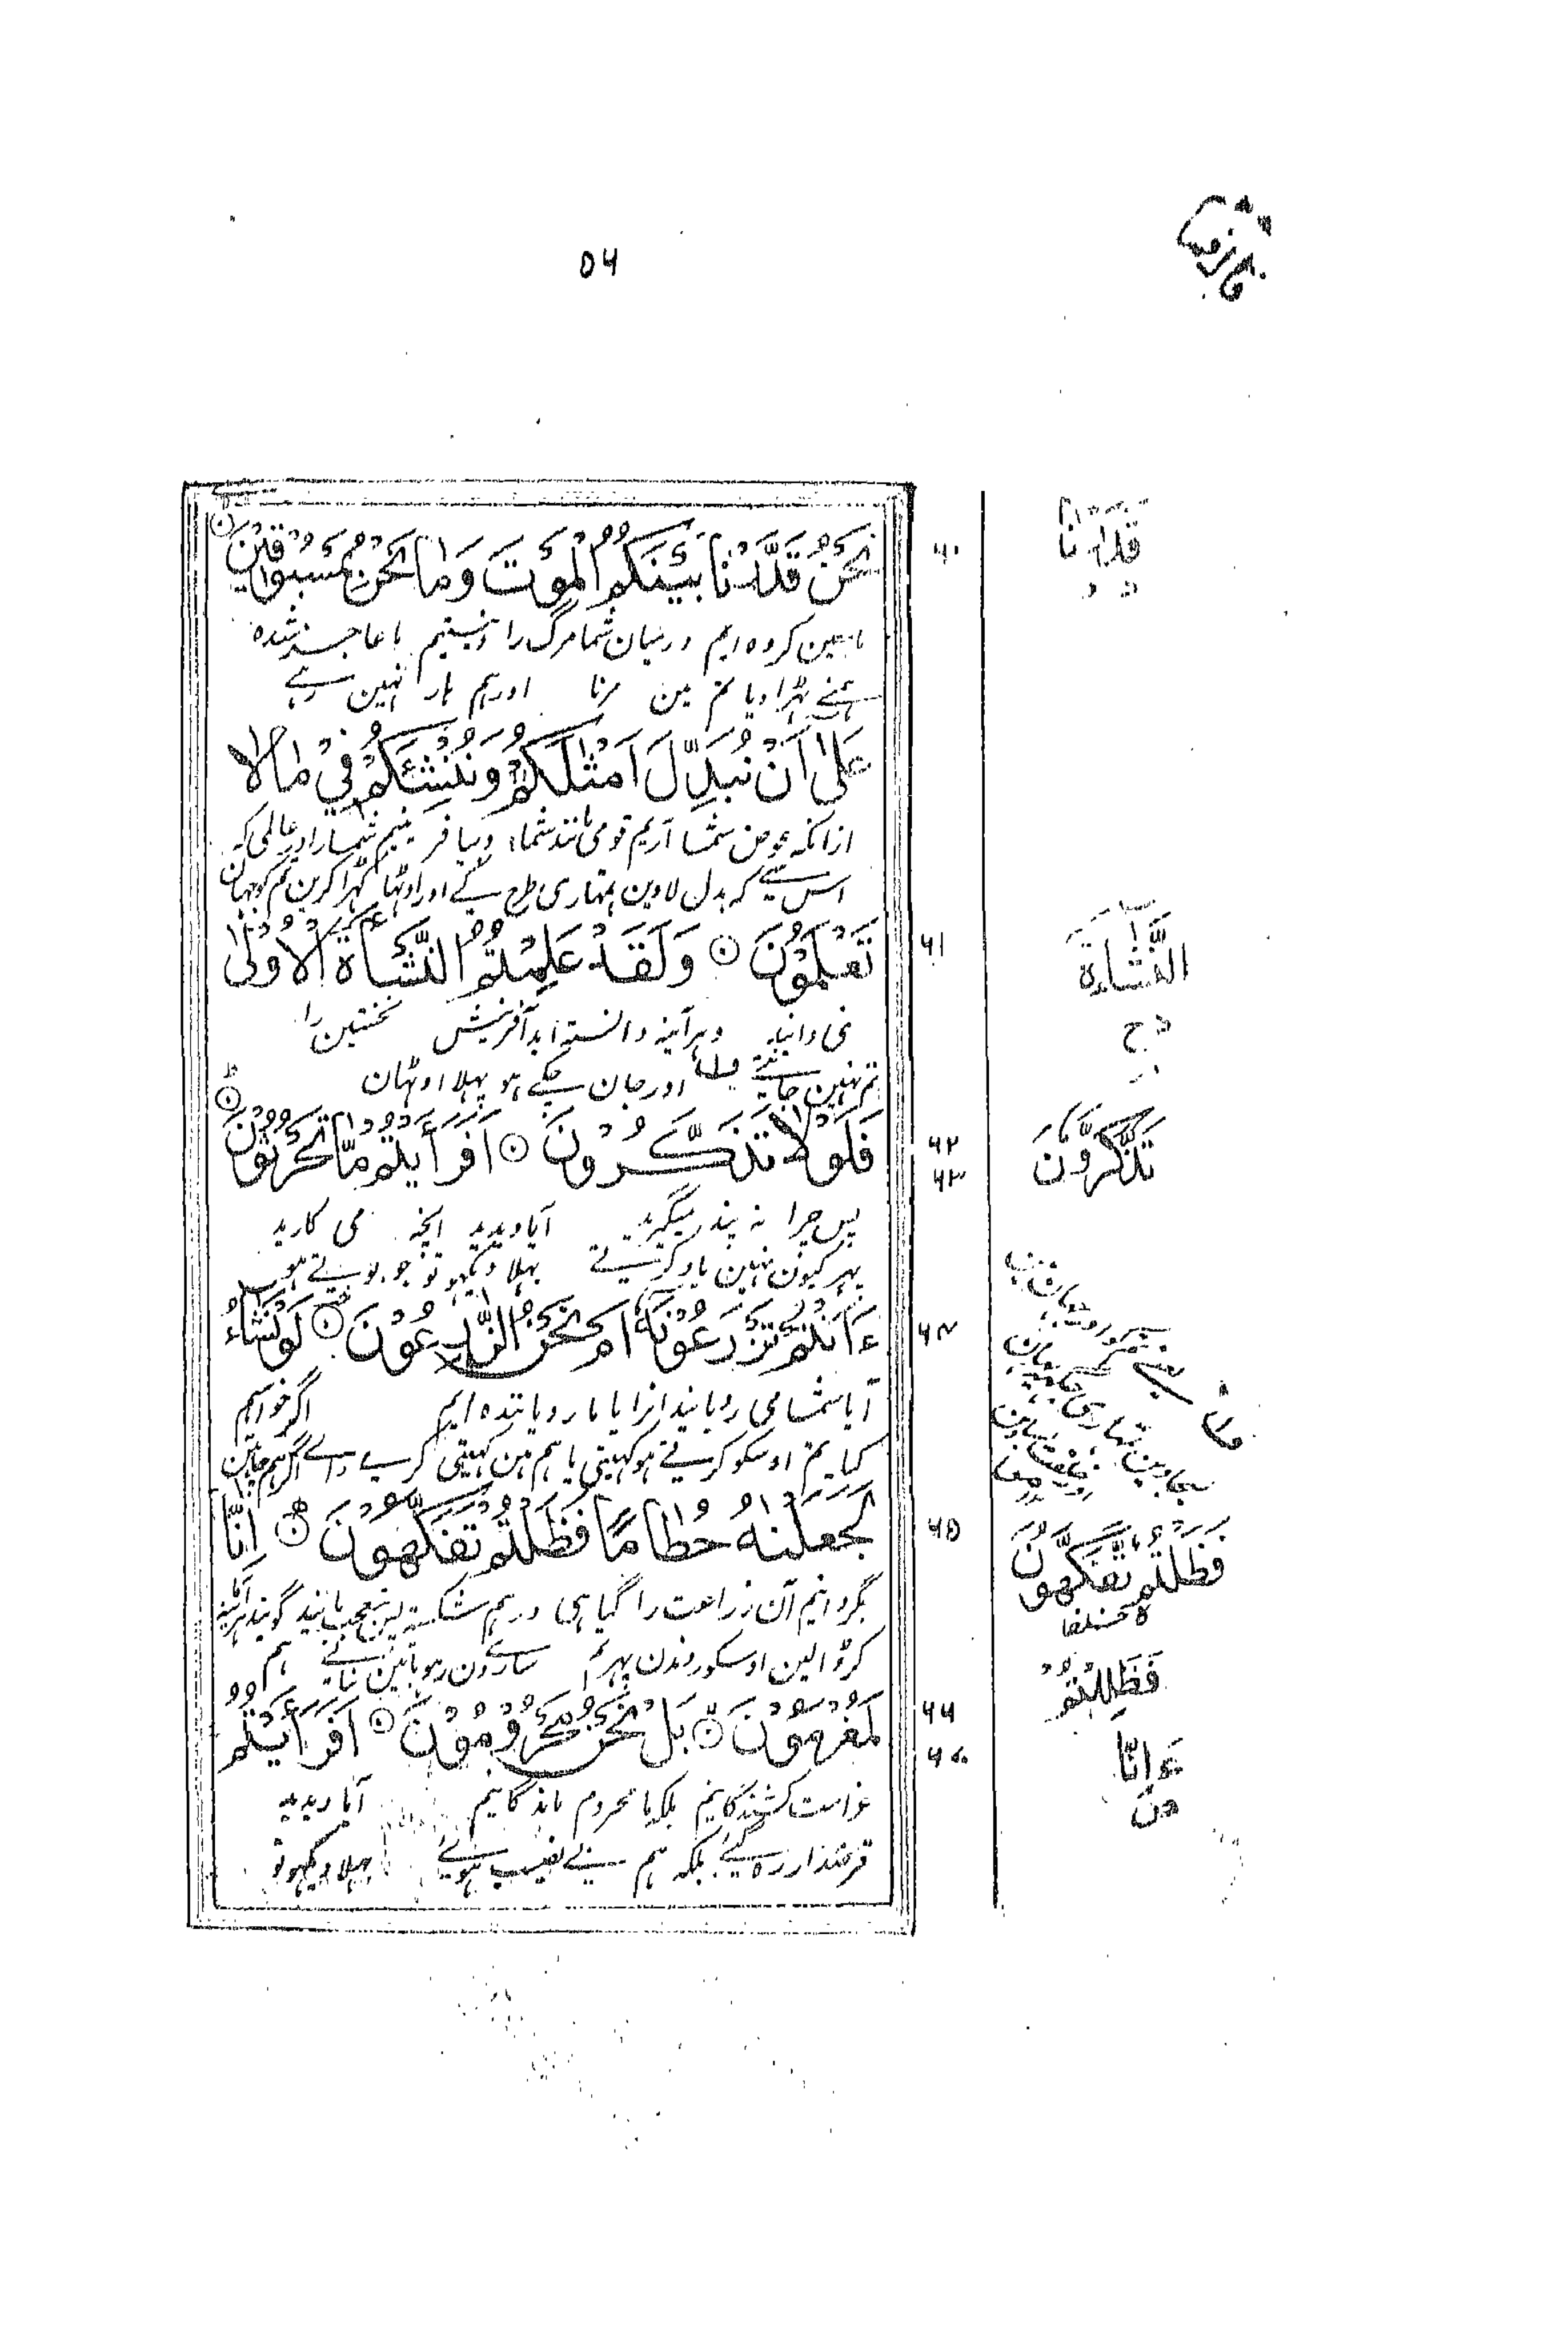 ۵۶
نَحْنُ قَدَّرْنَا بَيْنَكُمُ الْمَوْتَ وَمَا نَحْنُ بِمَسْبُوْقِيْنَ
۶۰
قَدَرْنَا
کرده ایم درمیان شما مرگ را و نیستیم ما عاجز شده
ہمنے ٹہرا دیا تم مین مرنا اور ہم ہار نہین رہے
عَلٰى اَنْ نُّبَدِّلَ اَمْثَالَكُمْ وَنُنْشِئَكُمْ فِيْ مَا لَا
ازانکه عوض شما آریم قومی مانند شما و بیافرینیم شما را در عالمی که
اس سے کہ بدل لاوین تمہاری طرح کے اور اوٹھا کہڑا کرین تم کو جہان
تَعْلَمُوْنَ ۝ وَلَقَدْ عَلِمْتُمُ النَّشْاَةَ الْاُوْلٰى
۶۱
النَّشَاءَةَ
ح
نمی دانید و هر آینه دانسته اید آفرینش نخستین را
تم نہین جانتے اور جان چکے ہو پہلا اوٹہان
فَلَوْلَا تَذَكَّرُوْنَ ۝ اَفَرَاَيْتُمْ مَّا تَحْرُثُوْنَ
۶۲
۶۳
تَذَّكَّرُوْنَ
پس چرا نه پند میگیرید آیا دیدید انچه می کارید
پہر کیون نہین یاد کرتے بہلا دیکہو تو جو بوتے ہو
ءَاَنْتُمْ تَزْرَعُوْنَهٗ اَمْ نَحْنُ الزّٰرِعُوْنَ ۝ لَوْ نَشَاءُ
۶۴
آیا شما می رویانید انرا یا ما رویاننده ایم اگر خواهیم
کیا تم اوسکو کرتے ہو کہیتی یا ہم ہین کہیتی کرنے والے اگر ہم چاہین
لَجَعَلْنٰهُ حُطَامًا فَظَلْتُمْ تَفَكَّهُوْنَ ۝ اِنَّا
۶۵
فَظَلْتُمْ تَّفَكَّهُوْنَ
بگردانیم آن زراعت را گیاہی درہم شکسته پس تعجب مانید گویند هر آئینه
کر ڈالین اوسکو روندن پہر تم سارے دن رہو باتین بناتے ہم
فَظَلِلْتُمْ
لَمُغْرَمُوْنَ ۝ بَلْ نَحْنُ مَحْرُوْمُوْنَ ۝ اَفَرَاَيْتُمُ
۶۶
۶۷
ءَاِنَّا
غرامت کشندگانیم بلکه ما محروم ماندگانیم آیا دیدید
قرضدار رہ گئے بلکہ ہم بے نصیب ہوئے بہلا دیکہو تو